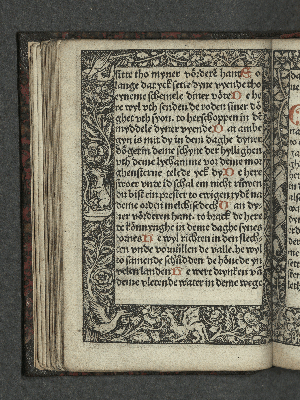 sitte tho myner vorderē hant So
lange dat yck sette dyne vyende tho
eyneme schemele dyner vöte De he
re wyl vth senden de roden dyner dö
ghet vth syon. to herschoppen in dē
myddele dyner vyende Dat ambe
gyn is mit dy in dem daghe dyner
döget in deme schyne der hyllighen
vth deme lychamme vor deme mor
ghensterne telede yck dy De here
swor vnde id schal em nicht ruwen
du bist ein prester to ewigen tydē na
deme orden melchisedech De here to dy
ner vörderen hant. to brack de here
de könnynghe in deme daghe synes
tornes He wyl richten in den slech
ten vnde voruüllen de valle. he wyl
to samende schüdden de höuede yn
velen landen He wert drynken vā
deme vletenden water in deme wege